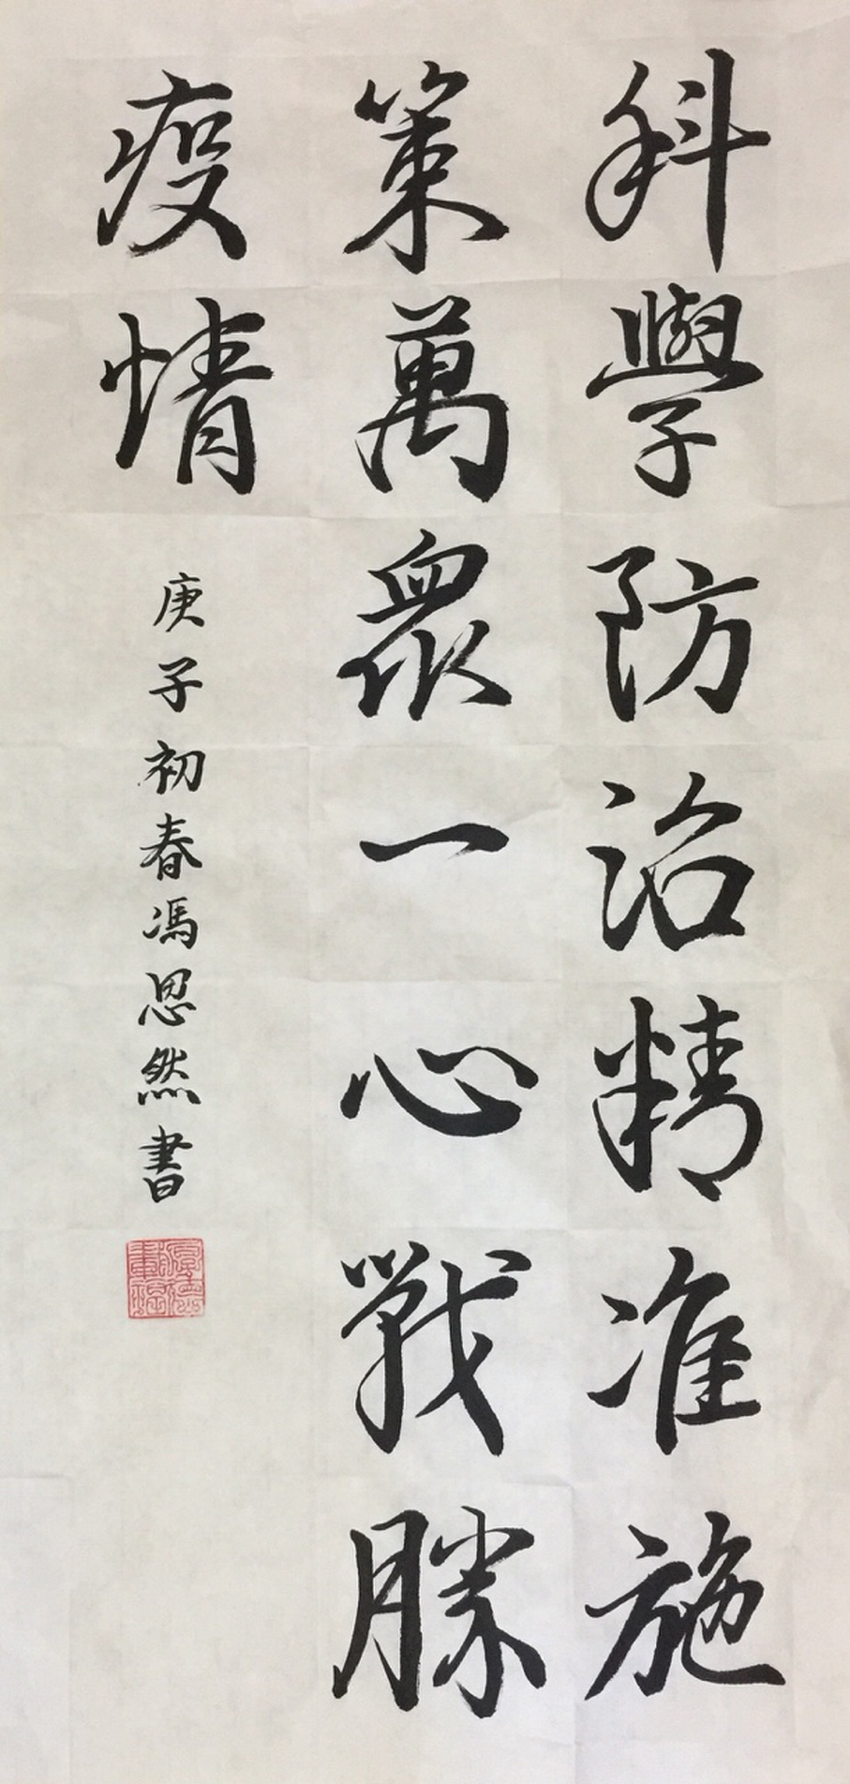 科學防治精准施
策萬衆一心戰勝
疫情
庚子初春馮思然書